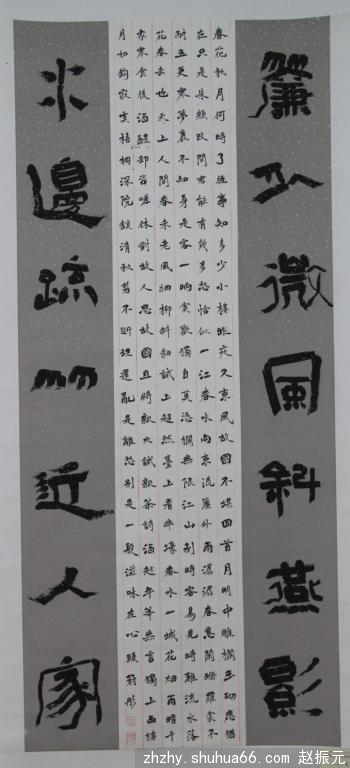 簾外微風斜燕影
春花秋月何時了往事知多少小樓昨夜又東風故國不堪回首月明中雕欄玉砌應猶
在只是朱顏改問君能有幾多愁恰似一江春水向東流簾外雨潺潺春意闌珊羅衾不
耐五更寒夢裏不知身是客一晌貪歡獨自莫憑欄無限江山別時容易見時難流水落
花春去也天上人間春未老風細柳斜斜試上超然臺上看半壕春水一城花烟雨暗千
家寒食後酒醒却咨嗟休對故人思故國且將新火試新茶詩酒趁年華無言獨上西樓
月如鈎寂寞梧桐深院鎖清秋剪不斷理還亂是離愁別是一般滋味在心頭
水邊疏竹近人家
zhzhy.shuhua66.com 赵振元